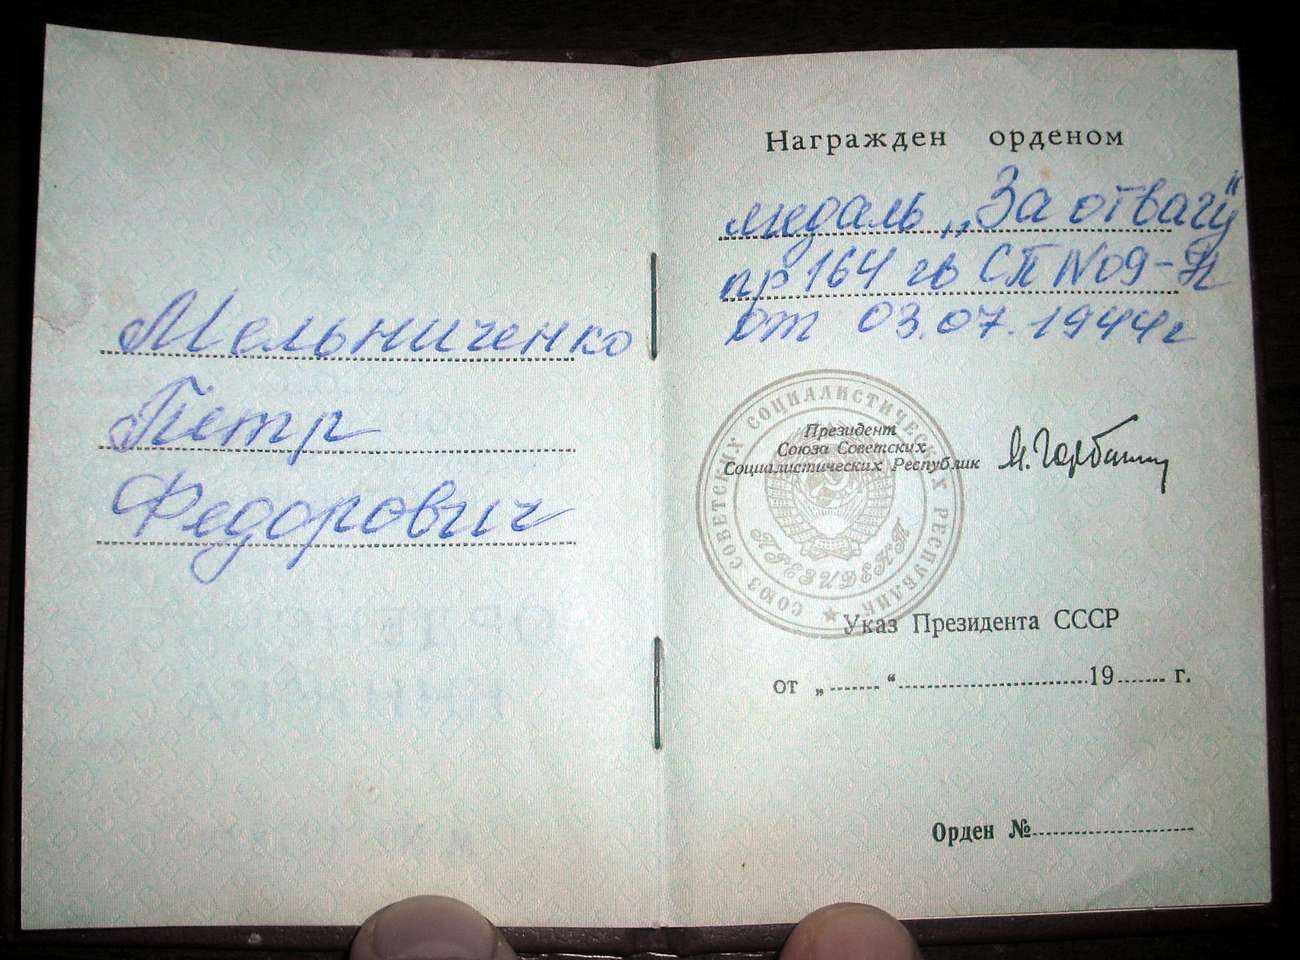 Мельниченко
Петр
Федорович
Награжден орденом
медаль „За отвагу“
пр 164 гв СП №09-Н
от 03.07.1944г
Президент
Союза Советских
Социалистических Республик
М. Горбачев
СОЮЗ СОВЕТСКИХ СОЦИАЛИСТИЧЕСКИХ РЕСПУБЛИК
ПРЕЗИДЕНТ
Указ Президента СССР
от „......“ ........................ 19...... г.
Орден №....................